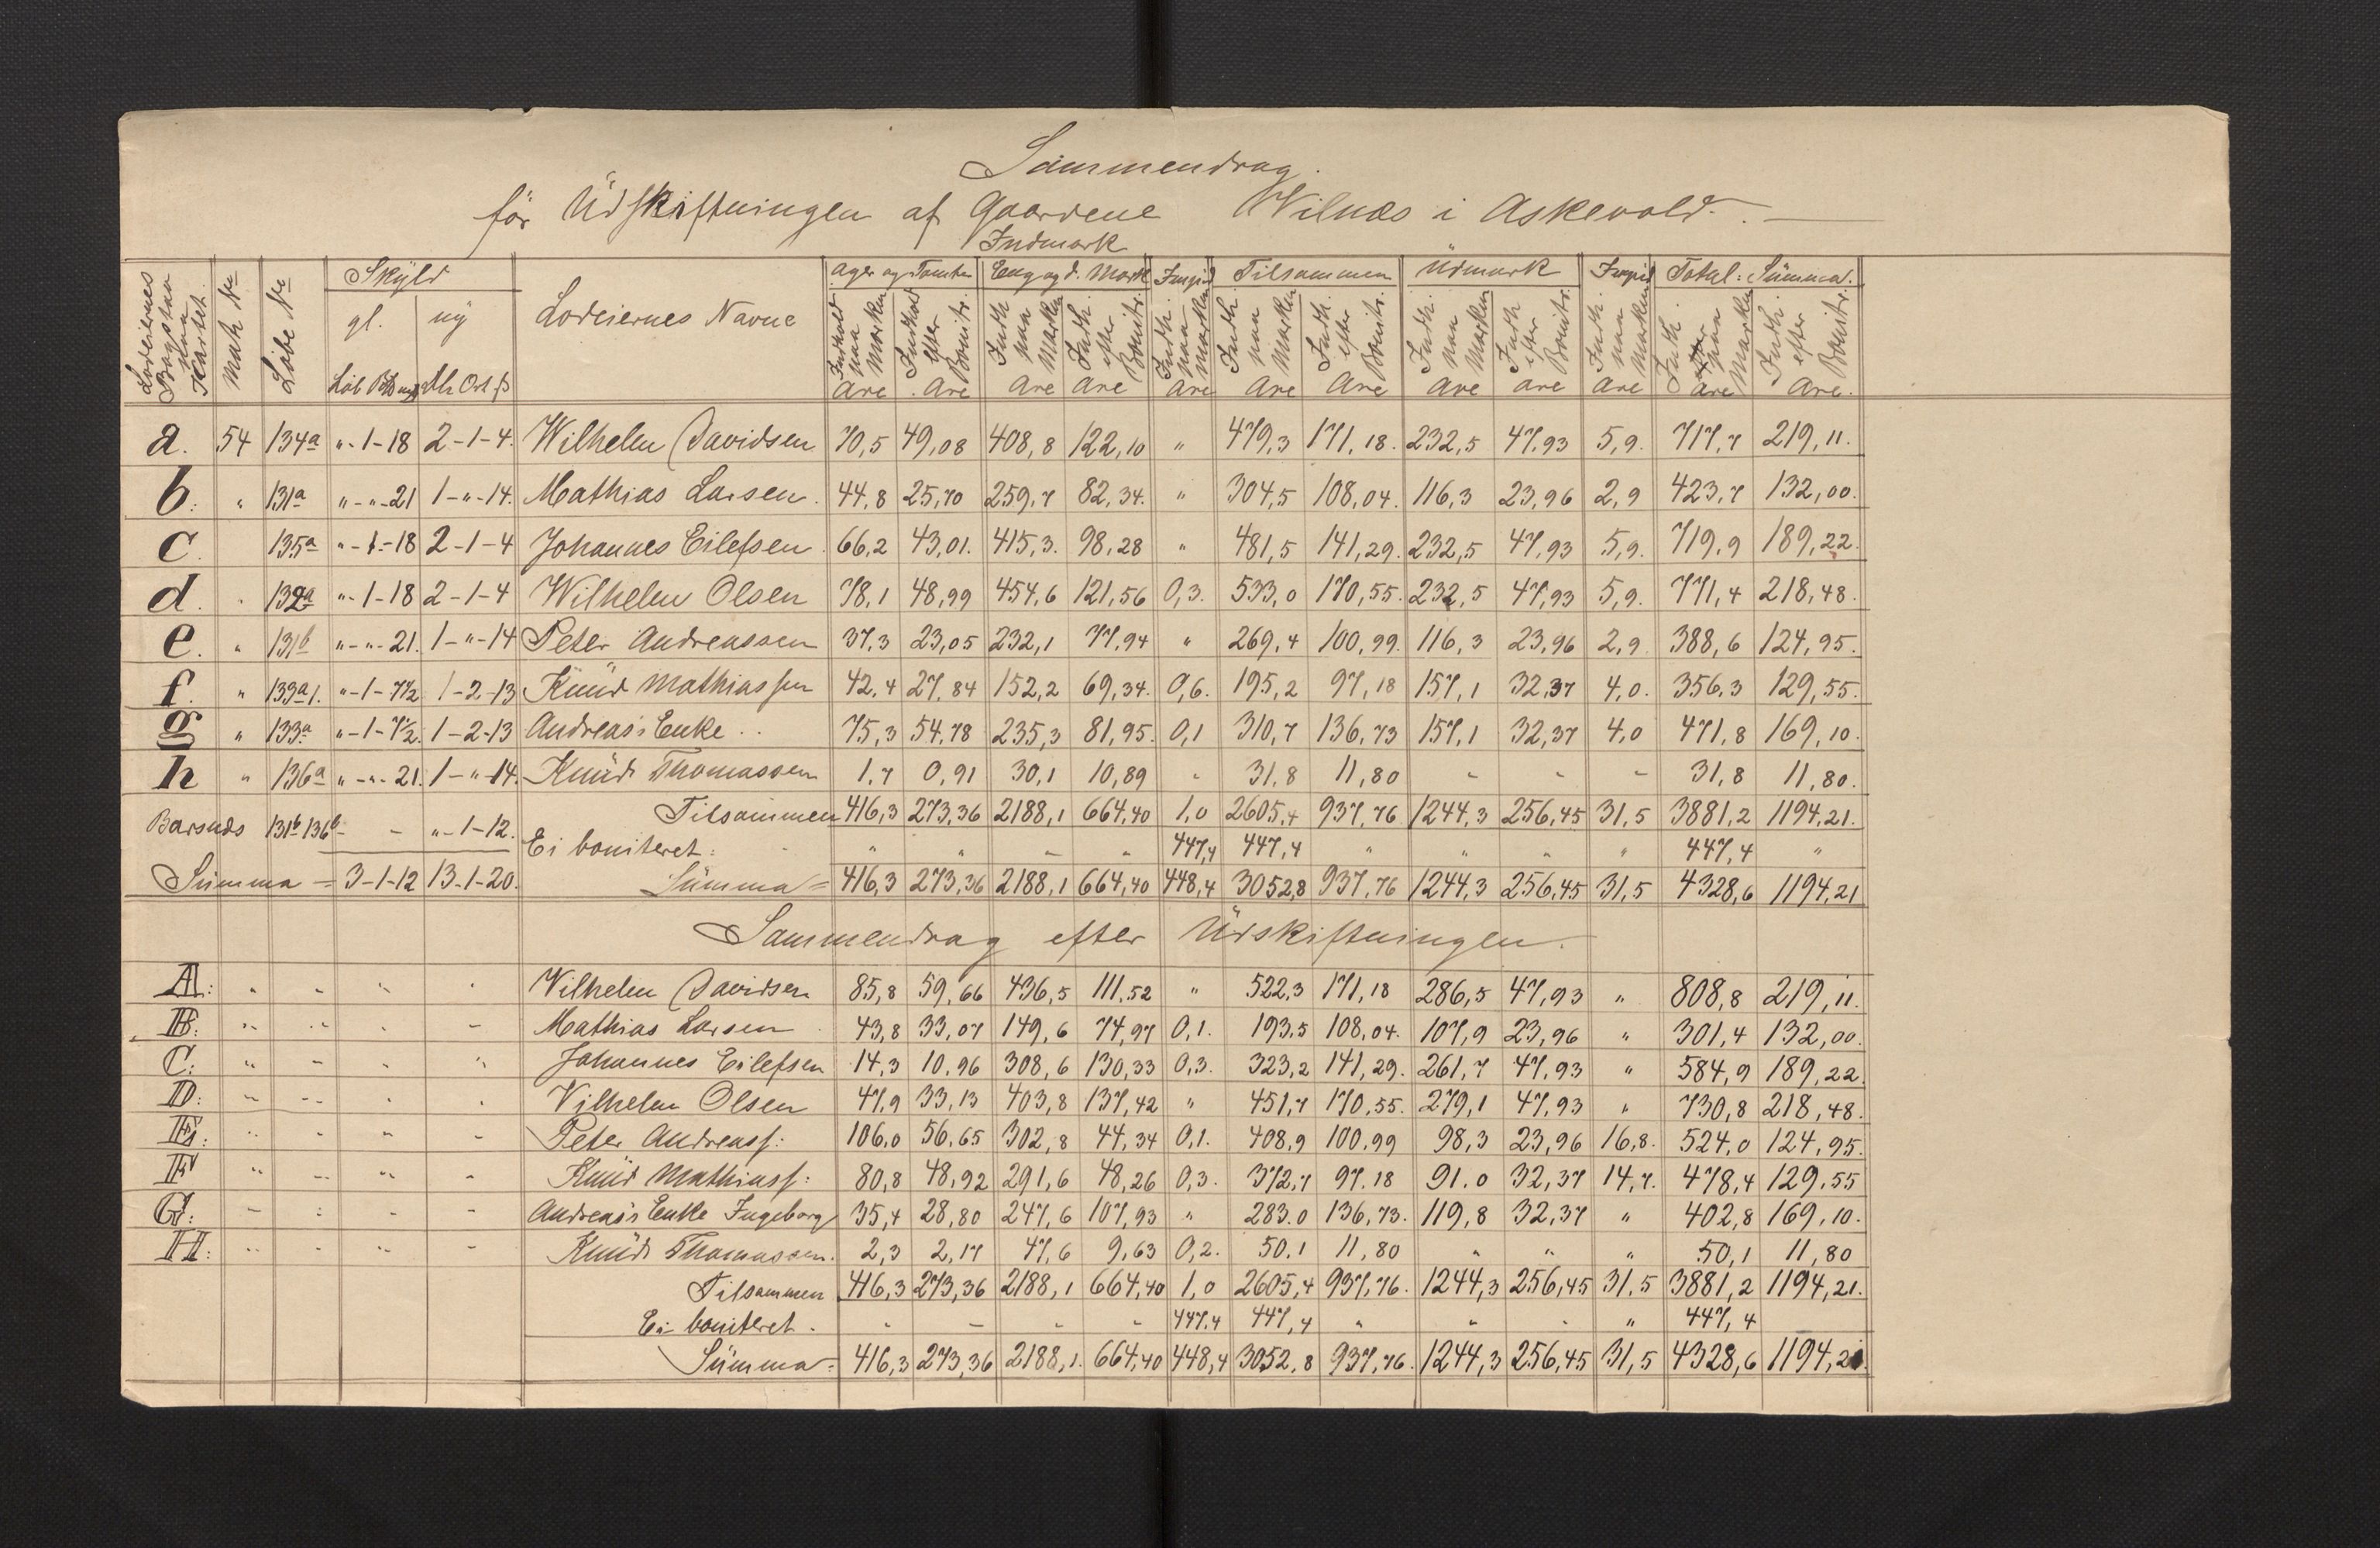 Sammendrag.
för Üdskiftningen af Gaardene Wilnæs i Askevold.
Indmark
Lodeiernes Bogstav paa Kartet. | Matr No | Löbe No | Skÿld | Lodeiernes Navne | Ager og Tomter | Eng og d. Mark | Impid | Tilsammen | Üdmark | Impid | Total: Sümma.
gl. | nÿ
Löb | Mk Ort ß
Indhold paa Marken Are | Indhold efter Bonitr. Are | Indh. paa Marken Are | Indh. efter Bonitr. Are | Indh. paa Marken Are | Indh. paa Marken Are | Indh. efter Bonitr. Are | Indh. paa Marken Are | Indh. efter Bonitr. Are | Indh. paa Marken Are | Indh. paa Marken Are | Indh. efter Bonitr. Are.
a. 54 134a "-1-18 2-1-4. Wilhelm Davidsen 70,5 49,08 408,8 122,10 " 479,3 171,18. 232,5 47,93 5,9. 717,7 219,11.
b. " 131a "-"-21 1-"-14. Mathias Larsen. 44,8 25,70 259,7 82,34. " 304,5 108,04. 116,3 23,96 2,9 423,7 132,00.
c. 135a "-1-18 2-1-4 Johannes Eilefsen. 66,2 43,01. 415,3. 98,28 " 481,5 141,29. 232,5 47,93 5,9. 719,9 189,22.
d. " 132a "-1-18 2-1-4 Wilhelm Olsen 78,1 48,99 454,6 121,56 0,3. 533,0 170,55. 232,5 47,93 5,9. 771,4 218,48.
e. " 131b "-"-21. 1-"-14 Peter Andreassen 37,3 23,05 232,1 77,94 " 269,4 100,99. 116,3 23,96 2,9 388,6 124,95.
f. " 133a1. "-1-7½ 1-2-13 Knüd Mathiassen 42,4 27,84 152,2 69,34. 0,6. 195,2 97,18 157,1 32,37 4,0. 356,3 129,55.
g " 133a "-1-7½. 1-2-13 Andreas's Enke.. 75,3 54,78 235,3 81,95. 0,1 310,7 136,73 157,1 32,37 4,0 471,8 169,10.
h " 136a "-"-21. 1-"-14. Knüd Thomassen 1,7 0,91 30,1 10,89 " 31,8 11,80 - - - 31,8 11,80.
Barsnæs 131b 136b - - "-1-12. Tilsammen 416,3 273,36 2188,1 664,40 1,0 2605,4 937,76 1244,3 256,45 31,5 3881,2 1194,21.
Ei boniteret: " " - " 447,4 447,4 " " " " 447,4 "
Sümma = 3-1-12 13-1-20. Sümma = 416,3 273,36 2188,1 664,40 448,4 3052,8 937,76 1244,3 256,45 31,5 4328,6 1194,21
Sammendrag efter Üdskiftningen.
A: " - " " Wilhelm Davidsen 85,8 59,66 436,5 111,52 " 522,3 171,18 286,5 47,93 " 808,8 219,11.
B: " " " - Mathias Larsen 43,8 33,07 149,6 74,97 0,1. 193,5 108,04. 107,9 23,96 " 301,4 132,00.
C: " - " " Johannes Eilefsen 14,3 10,96 308,6 130,33 0,3. 323,2 141,29. 261,7 47,93 " 584,9 189,22.
D: - - " " Vilhelm Olsen 47,9 33,13 403,8 137,42 " 451,7 170,55. 279,1 47,93 " 730,8 218,48.
E: " - " - Peter Andreass: 106,0 56,65 302,8 44,34 0,1. 408,9 100,99 98,3 23,96 16,8. 524,0 124,95.
F " - " - Knüd Mathiass: 80,8 48,92 291,6 48,26 0,3. 372,7 97,18 91,0 32,37 14,7. 478,4 129,55
G: - : - - Andreas's Enke Ingeborg 35,4 28,80 247,6 107,93 " 283,0 136,73. 119,8 32,37 " 402,8 169,10.
H: " - " - Knüd Thomassen. 2,3 2,17 47,6 9,63 0,2. 50,1 11,80 " " " 50,1 11,80
Tilsammen 416,3 273,36 2188,1 664,40 1,0 2605,4 937,76. 1244,3 256,45 31,5 3881,2 1194,21.
Ei boniteret. - - - - 447,4 447,4 " " - " 447,4
Sümma: 416,3 273,36 2188,1. 664,40 448,4 3052,8 937,76. 1244,3 256,45 31,5 4328,6 1194,21.